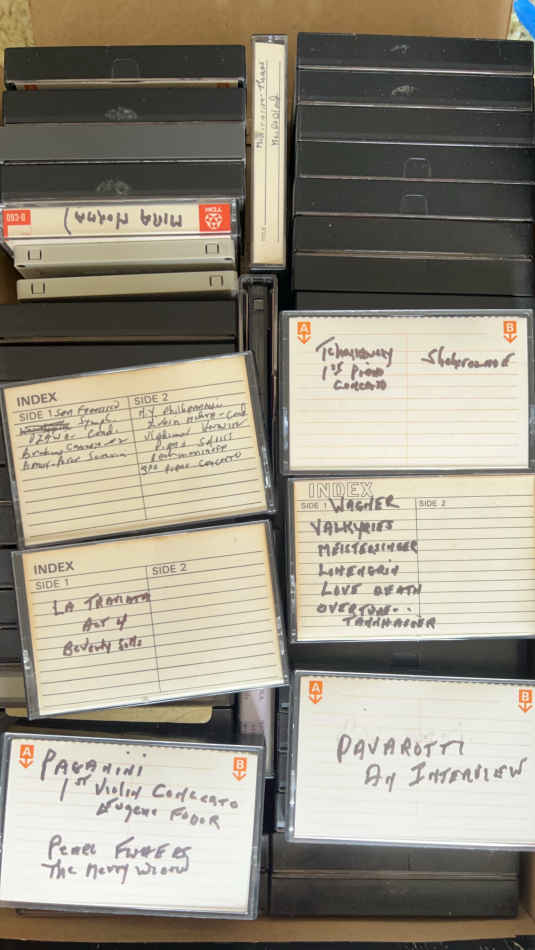 TITLE
D-C60
TDK
A
B
Tchaikovsky
1st Piano
Concerto
INDEX
SIDE 1 San Francisco
Symph.
Ozawa - Cond.
SIDE 2
N.Y. Philharmonic
Zubin Mehta - Cond
Piano Soloist
Rachmaninoff
3rd Piano Concerto
INDEX
SIDE 1 WAGNER
SIDE 2
VALKYRIES
MEISTERSINGER
LOHENGRIN
LOVE DEATH
OVERTURE..
TANNHAUSER
INDEX
SIDE 1
SIDE 2
LA TRAVIATA
ACT 4
Beverly Sills
A
B
PAVAROTTI
AN INTERVIEW
A
B
PAGANINI
1ST VIOLIN CONCERTO
EUGENE FODOR
PEARL FISHERS
The Merry Widow